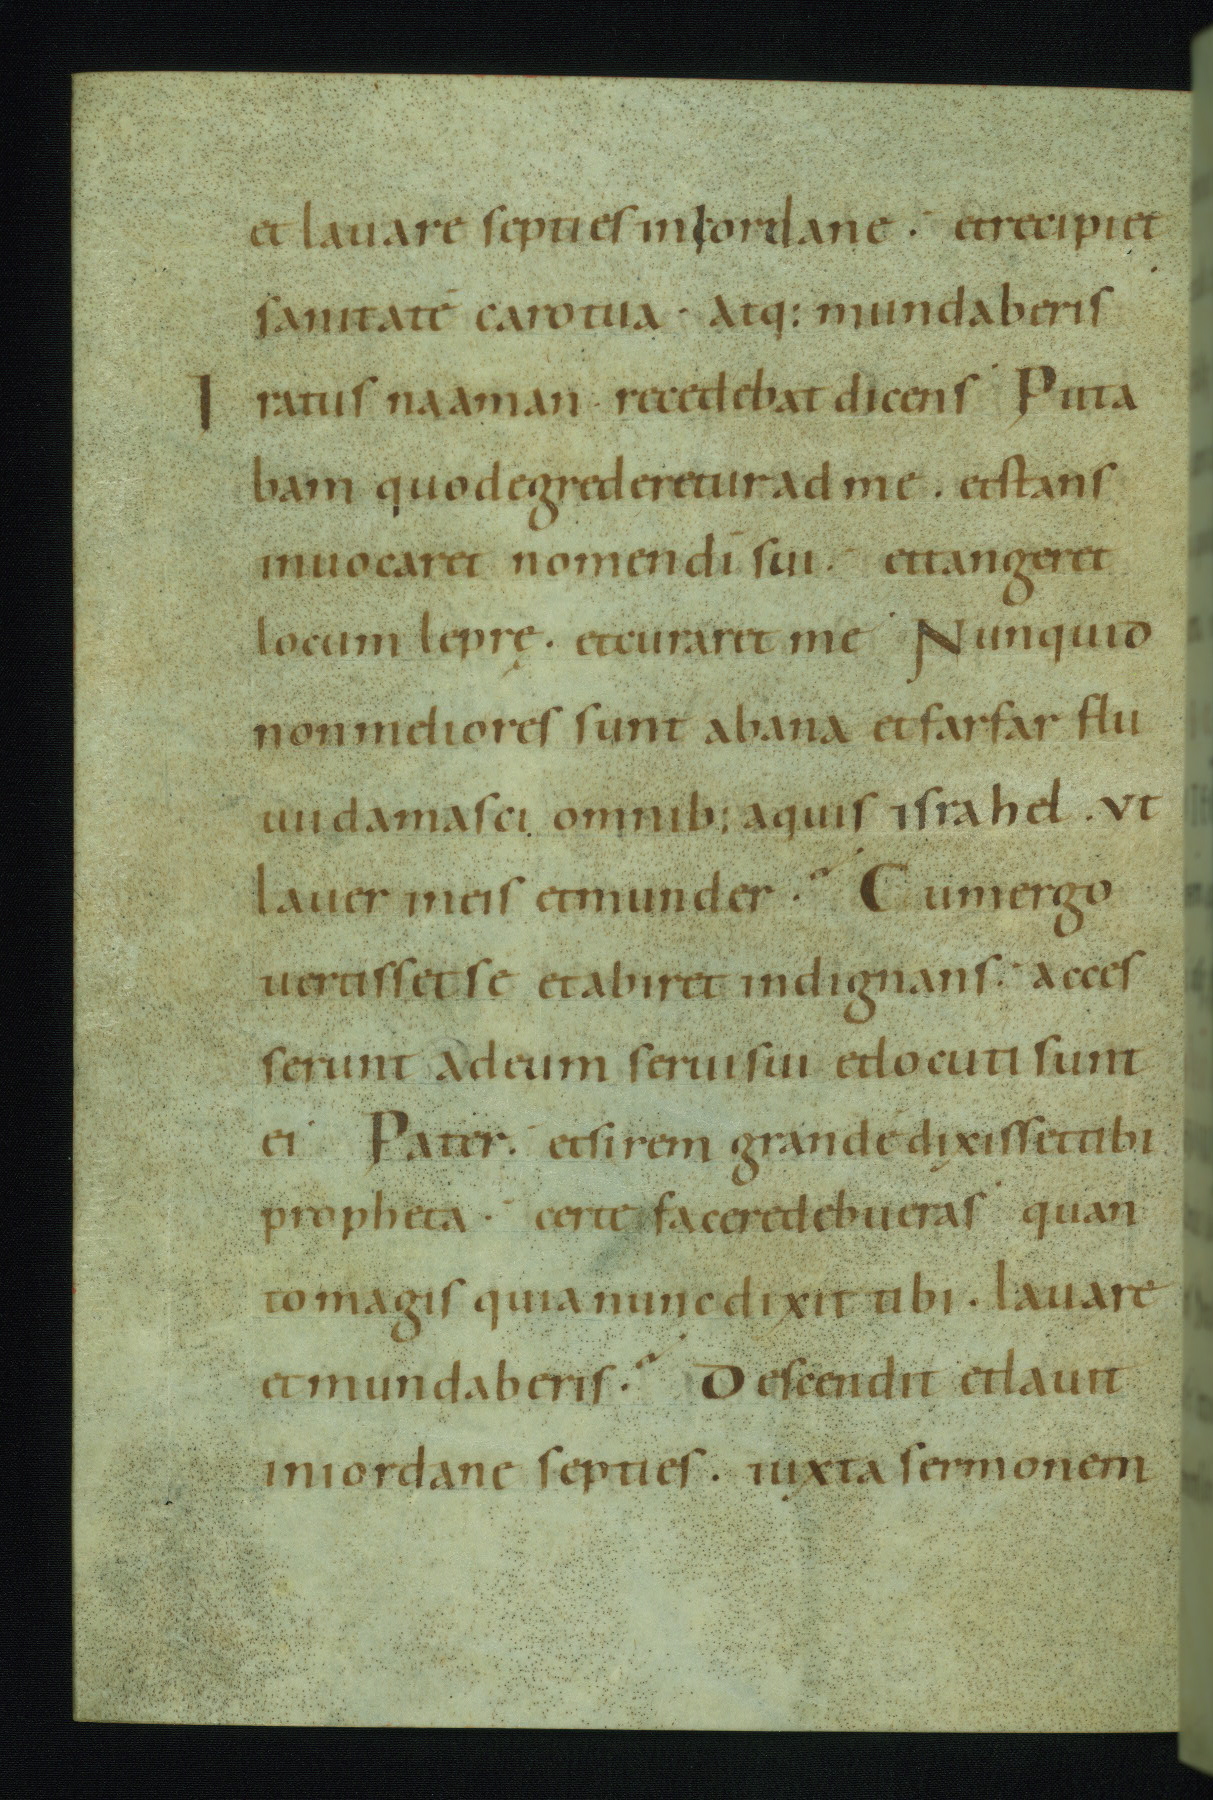 et lauare septies in iordane . et recipiet
sanitatē caro tua . Atq: mundaberis
Iratus naaman . recedebat dicens Puta
bam quod egrederetur ad me . et stans
inuocaret nomen dī sui . et tangeret
locum leprę . et curaret me Nunquid
non meliores sunt abana et farfar flu
uii damasci omnib; aquis israhel . vt
lauer in eis et munder . Cum ergo
uertisset se et abiret indignans . acces
serunt ad eum serui sui et locuti sunt
ei Pater . et si rem grandē dixisset tibi
propheta . certe facere debueras quan
to magis quia nunc dixit tibi . lauare
et mundaberis . Descendit et lauit
in iordane septies . iuxta sermonem